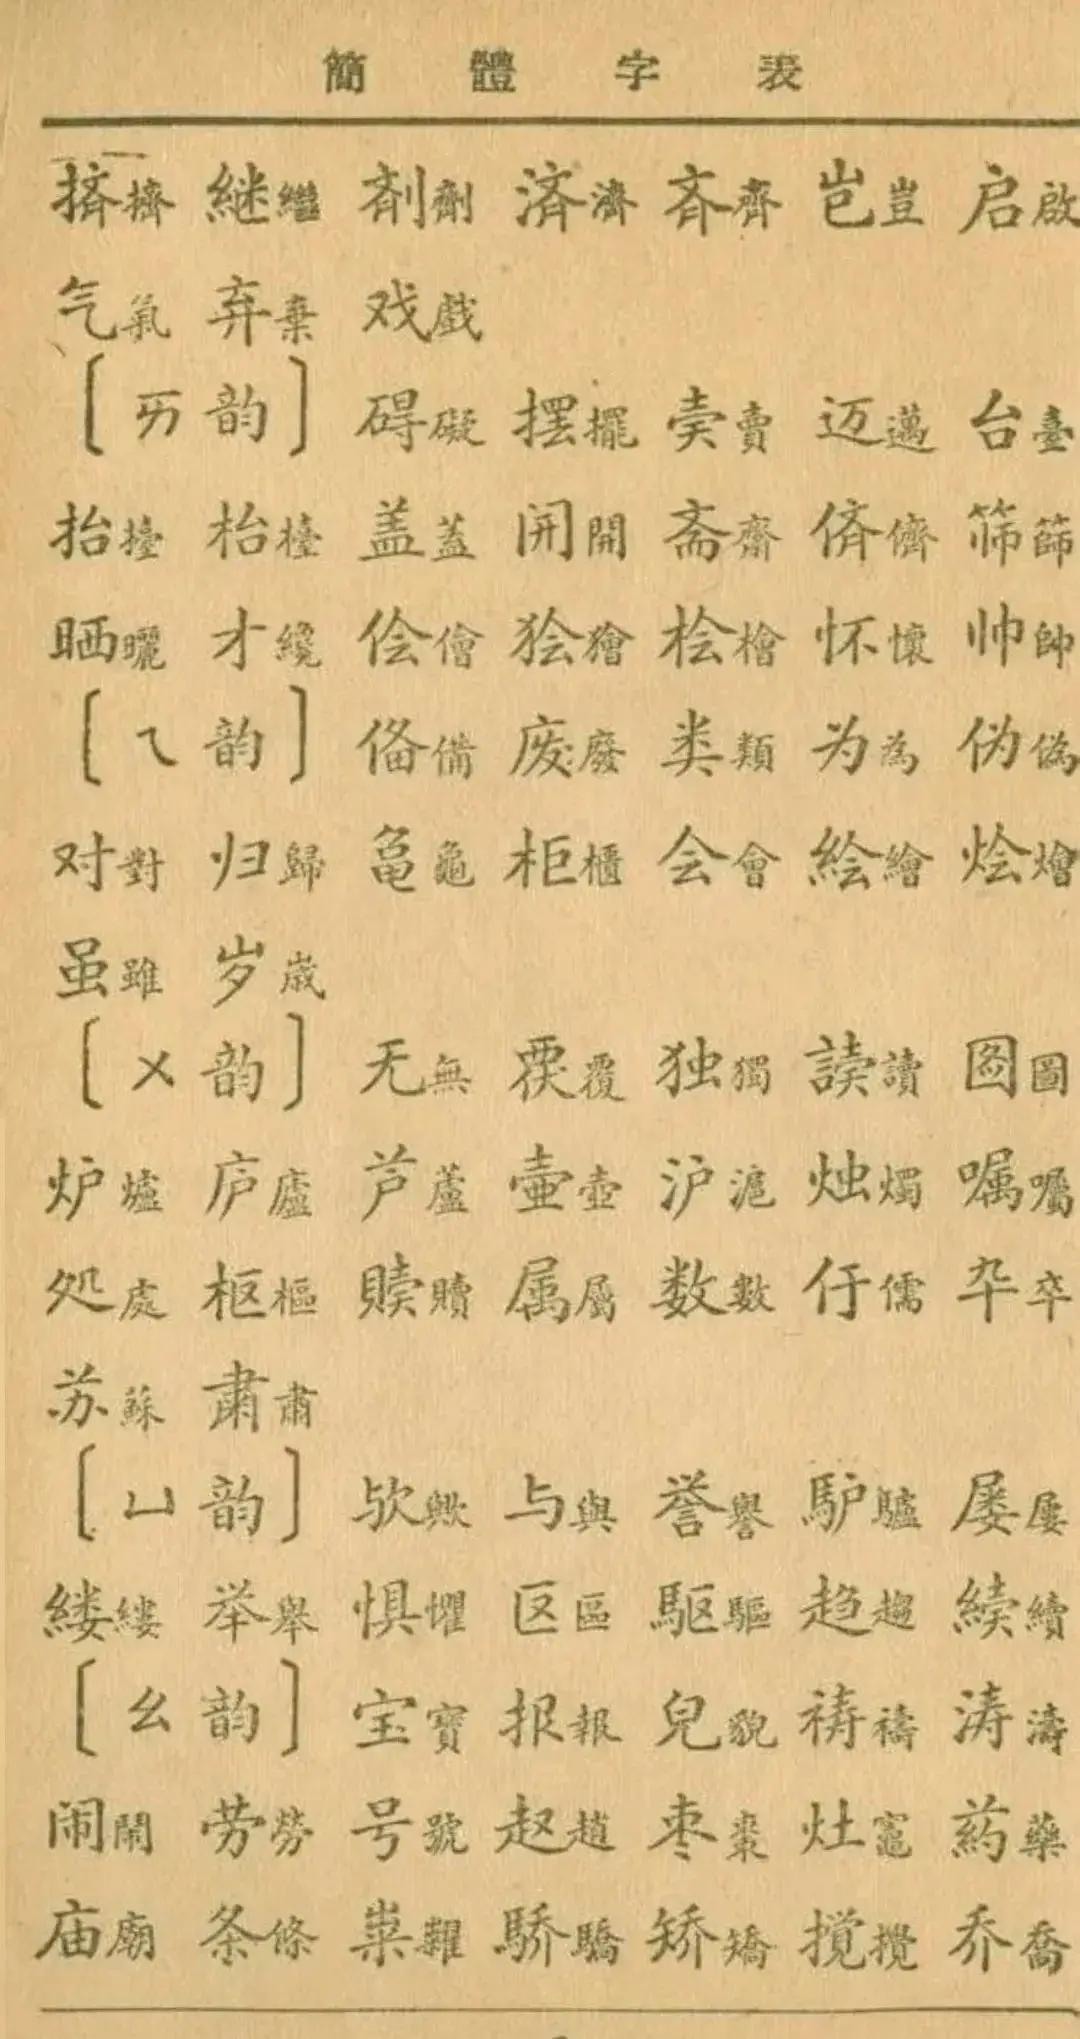 簡體字表
挤擠 継繼 剤劑 済濟 斉齊 岂豈 启啟
气氣 弃棄 戏戲
〔ㄞ韵〕 碍礙 摆擺 卖賣 迈邁 台臺
抬擡 枱檯 盖蓋 开開 斋齋 侪儕 筛篩
晒曬 才纔 侩儈 狯獪 桧檜 怀懷 帅帥
〔ㄟ韵〕 俻備 废廢 类類 为為 伪偽
对對 归歸 亀龜 柜櫃 会會 絵繪 烩燴
虽雖 岁歲
〔ㄨ韵〕 无無 覆 独獨 読讀 図圖
炉爐 庐廬 芦蘆 壷壺 沪滬 烛燭 嘱囑
処處 枢樞 賩贖 属屬 数數 伃儒 卆卒
苏蘇 肃肅
〔ㄩ韵〕 欤歟 与與 誉譽 馿驢 屡屢
緀縷 举舉 惧懼 区區 駆驅 趋趨 続續
〔ㄠ韵〕 宝寶 报報 皃貌 祷禱 涛濤
闹鬧 劳勞 号號 赵趙 枣棗 灶竈 药藥
庙廟 条條 粜糶 驕 矫矯 撹攪 乔喬